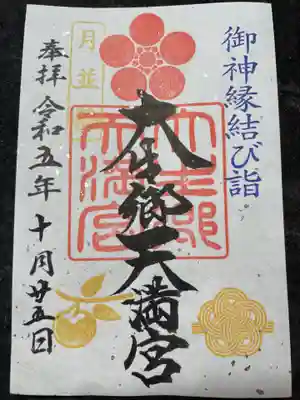 御神縁結び詣
大生郷天満宮
月並
奉拝 令和五年十月廿五日